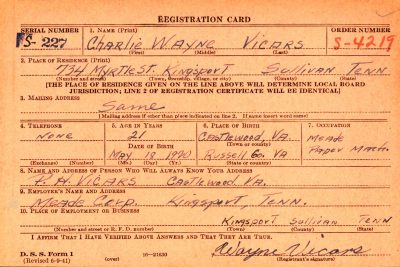 REGISTRATION CARD
SERIAL NUMBER 1. NAME (Print) ORDER NUMBER
S- 227 Charlie WAYNE VICARS S-4219
(First) (Middle) (Last)
2. PLACE OF RESIDENCE (Print)
734 Myrtle st. Kingsport Sullivan Tenn
(Number and street) (Town, township, village, or city) (County) (State)
[THE PLACE OF RESIDENCE GIVEN ON THE LINE ABOVE WILL DETERMINE LOCAL BOARD
JURISDICTION; LINE 2 OF REGISTRATION CERTIFICATE WILL BE IDENTICAL]
3. MAILING ADDRESS
Same
[Mailing address if other than place indicated on line 2. If same insert word same]
4. TELEPHONE 5. AGE IN YEARS 6. PLACE OF BIRTH 7. OCCUPATION
NONE 21 Castlewood VA.
DATE OF BIRTH (Town or county) Meade
May 18 1920 Russell Co. VA Paper Mach.
(Exchange) (Number) (Mo.) (Day) (Yr.) (State or country)
8. NAME AND ADDRESS OF PERSON WHO WILL ALWAYS KNOW YOUR ADDRESS
H. VICARS Castlewood, Va.
9. EMPLOYER'S NAME AND ADDRESS
Meade Corp. Kingsport, Tenn.
10. PLACE OF EMPLOYMENT OR BUSINESS
Kingsport Sullivan Tenn
(Number and street or R. F. D. number) (Town) (County) (State)
I AFFIRM THAT I HAVE VERIFIED ABOVE ANSWERS AND THAT THEY ARE TRUE.
D. S. S. Form 1 Wayne Vicars
(Revised 6-9-41) (over) 16—21630 (Registrant's signature)